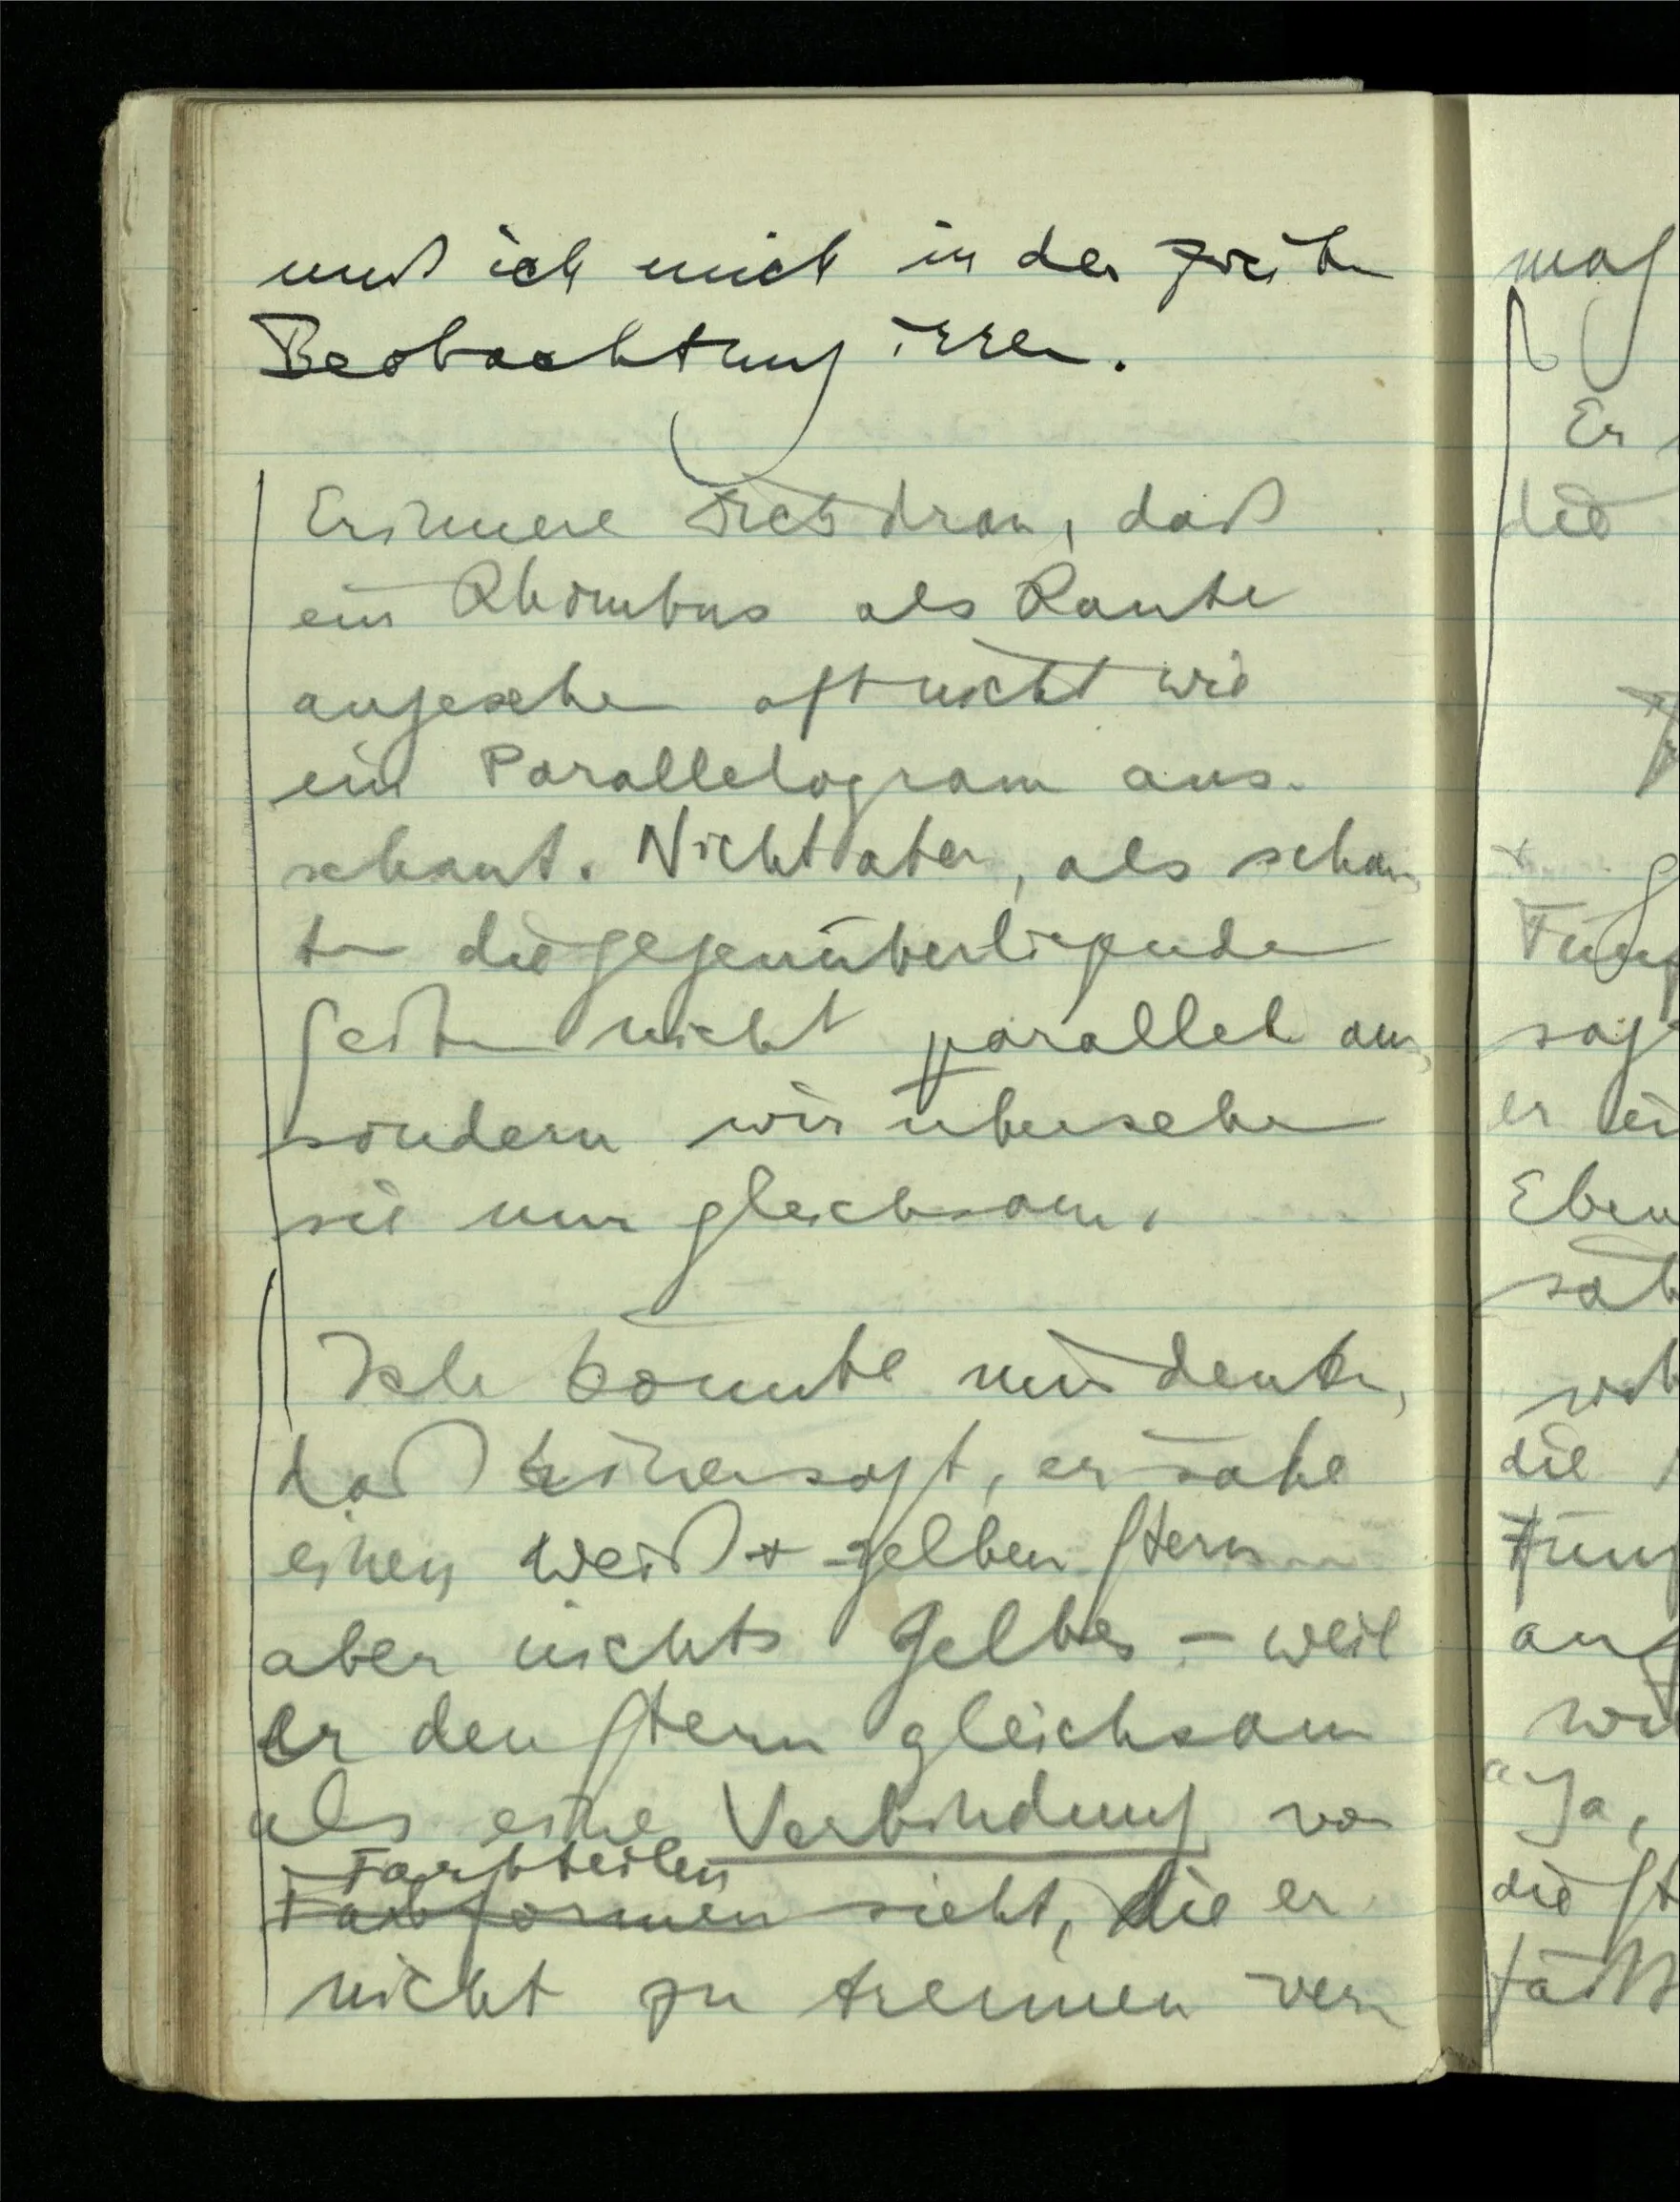 muß ich mich in der zweiten
Beobachtung irren.
Erinnere Dich dran, daß
ein Rhombus als Raute
angesehen oft nicht wie
ein Parallelogram aus-
schaut. Nicht aber, als schau
ten die gegenüberliegenden
Seiten nicht parallel aus,
sondern wir übersehen
sie nur gleichsam.
Ich könnte mir denken,
daß Einer sagt, er sähe
einen weiß + gelben Stern
aber nichts Gelbes – weil
er den Stern gleichsam
als eine Verbindung von
Farbteilen
Farbformen sieht, die er
nicht zu trennen ver
mag
Er
die
sage
er ein
Eben
die
Ja,
die